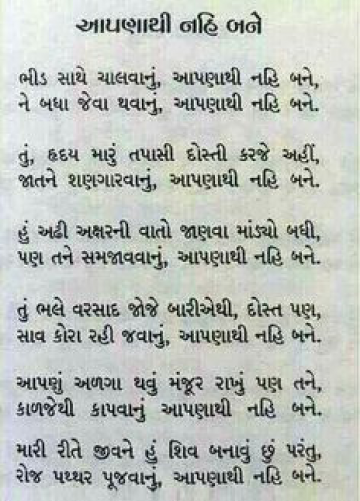 આપણાથી નહિ બને
ભીડ સાથે ચાલવાનું, આપણાથી નહિ બને,
ને બધા જેવા થવાનું, આપણાથી નહિ બને.
તું, હૃદય મારું તપાસી દોસ્તી કરજે અહીં,
જાતને શણગારવાનું, આપણાથી નહિ બને.
હું અઢી અક્ષરની વાતો જાણવા માંડ્યો બધી,
પણ તને સમજાવવાનું, આપણાથી નહિ બને.
તું ભલે વરસાદ જોજે બારીએથી, દોસ્ત પણ,
સાવ કોરા રહી જવાનું, આપણાથી નહિ બને.
આપણું અળગા થવું મંજૂર રાખું પણ તને,
કાળજેથી કાપવાનું આપણાથી નહિ બને.
મારી રીતે જીવને હું શિવ બનાવું છું પરંતુ,
રોજ પથ્થર પૂજવાનું, આપણાથી નહિ બને.